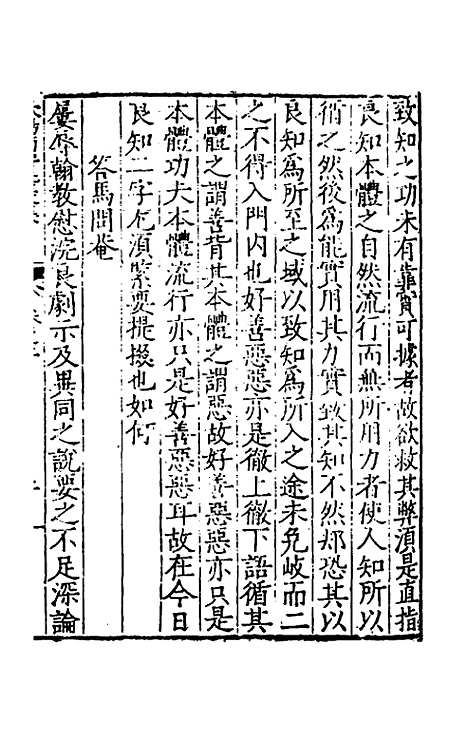 致知之功未有靠實可據者故欲救其弊須是直指
良知本體之自然流行而無所用力者使人知所以
循之然後爲能實用其力實致其知不然却恐其以
良知爲所至之域以致知爲所入之途未免岐而二
之不得入門內也好善惡惡亦是徹上徹下語循其
本體之謂善背其本體之謂惡故好善惡惡亦只是
本體功夫本體流行亦只是好善惡惡耳故在今日
良知二字尤須緊要提掇也如何
答馬問菴
屢辱翰教慰浣良劇示及異同之說要之不足深論